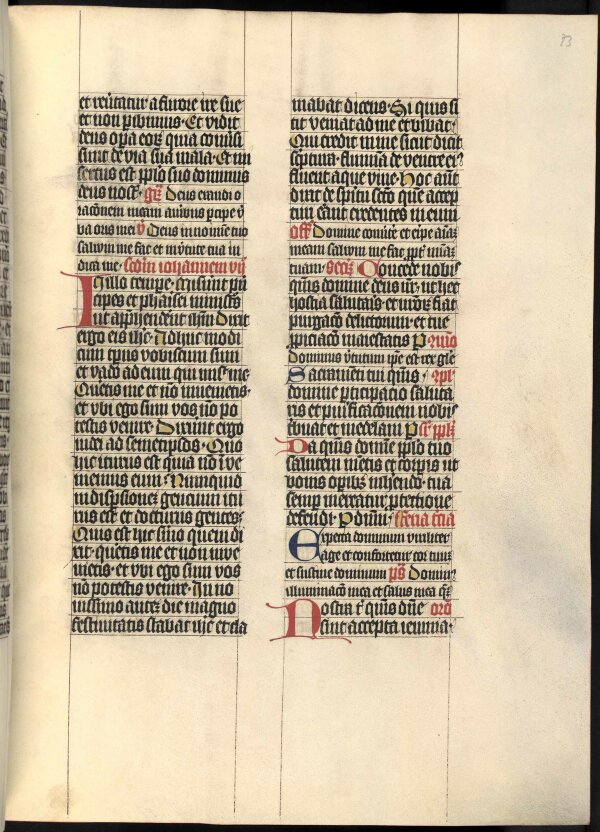 73
et revertatur a furore ire sue
et non peribimus · Et vidit
deus opera eorum quia conversi
sunt de via sua mala · Et mi
sertus est populo suo dominus
deus noster · Gr̄ Deus exaudi o
rationem meam auribus percipe v̄
ba oris mei V̄ Deus in nomine tuo
salvum me fac et in virtute tua iu
dica me · Scd̄m iohannem vij
In illo tempore · Miserunt prin
cipes et pharisei ministros
ut apprehenderent ihesum Dixit
ergo eis ihc · Adhuc modi
cum tempus vobiscum sum
et vado ad eum qui misit me ·
Queritis me et nō invenietis ·
et ubi ego sum vos nō po
testis venire · Dixerunt ergo
iudei ad semetipsos · Quo
hic iturus est quia nō inve
niemus eum · Numquid
in dispersionem gencium itu
rus est et docturus gentes ·
Quis est hic sermo quem di
xit · queritis me et non inve
nietis · et ubi ego sum vos
nō potestis venire · In no
vissimo autem die magno
festivitatis stabat ihc et cla
mabat dicens · Si quis si
tit veniat ad me et bibat ·
Qui credit in me sicut dicit
scriptura · flumina de ventre eiꝰ
fluent aque vive · Hoc autem
dixit de spiritu sancto que accep
turi erant credentes in eum
Off̄ Domine convertere et eripe animam
meam salvum me fac propter misericordiam
tuam · Secr̄ Concede nobis
quesumus domine deus noster · ut hec
hostia salutaris · et nostrorum fiat
purgacio delictorum · et tue
propiciacio maiestatis P Cōmō
Dominus virtutum ipse est rex glorie
Sacramenti tui quesumus · Cpl̄
domine participacio saluta
ris et purificacionem nobis
tribuat et medelam P Sr̄ pplm̄
Da quesumus domine populo tuo
salutem mentis et corporis ut
bonis operibus inherendo · tua
semper mereatur protectione
defendi · P dominum · Feria tercia
Expecta dominum viriliter
age et confortetur cor tuum
et sustine dominum Ps̄ Dominus
illuminacio mea et salus mea quem
Nostra tibi quesumus domine Orō
sint accepta ieiunia ·